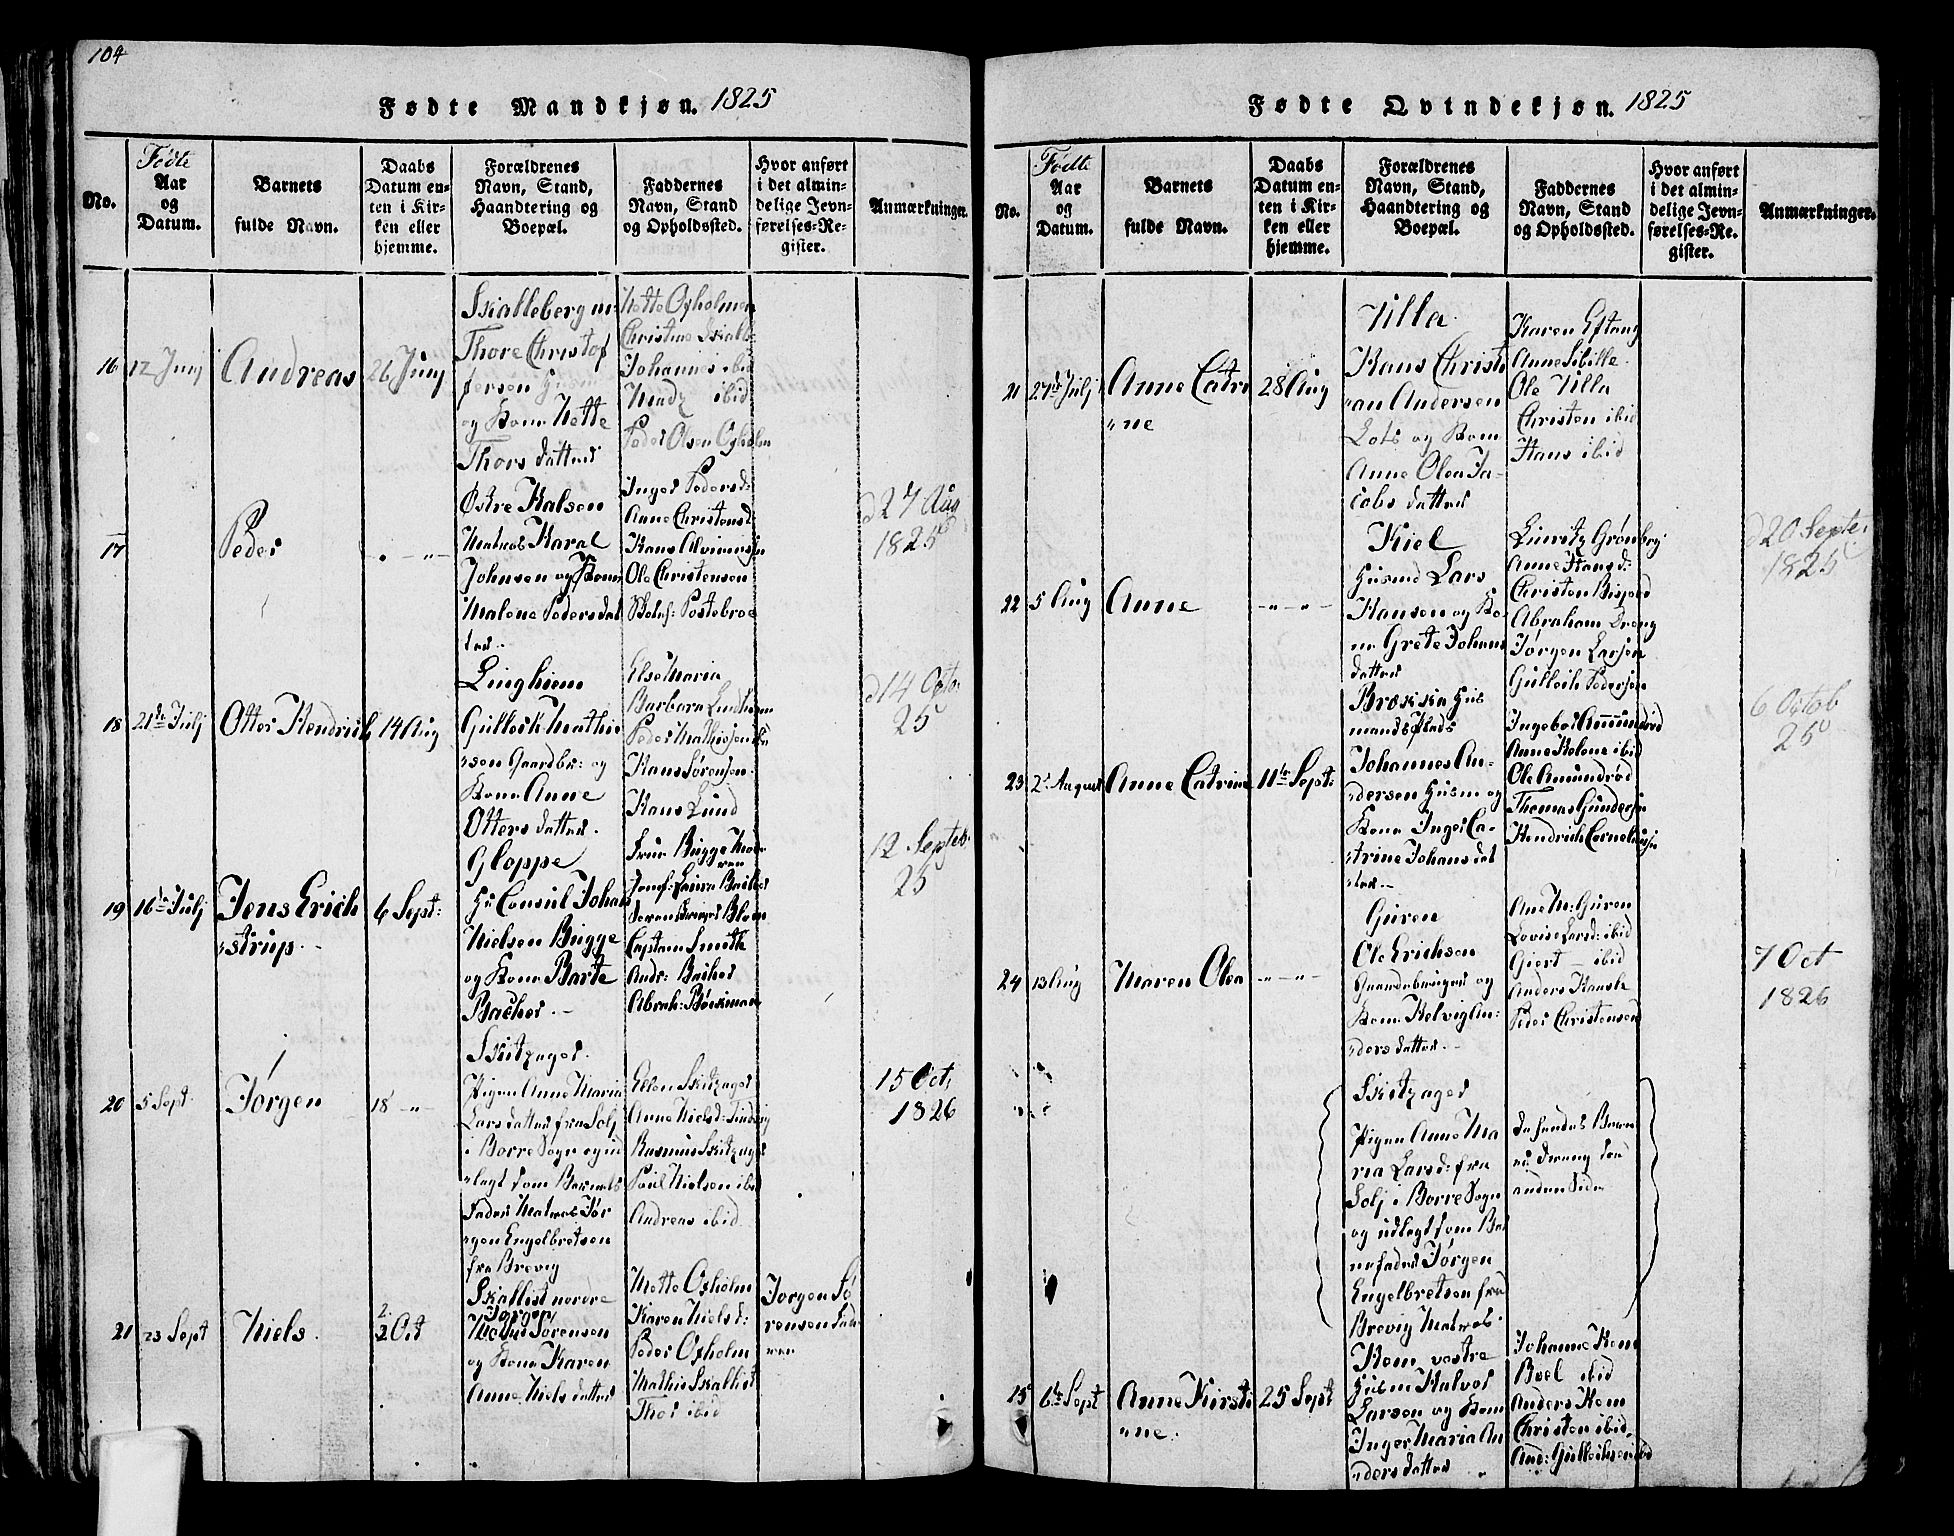 104
Fødte Mandkjøn. 1825
No.
Fødte
Aar
og
Datum.
Barnets
fulde Navn.
Daabs
Datum en-
ten i Kir-
ken eller
hjemme.
Forældrenes
Navn, Stand,
Haandtering og
Boepæl.
Faddernes
Navn, Stand
og Opholdssted.
Hvor anført
i det almin-
delige Jevn-
førelses-Re-
gister.
Anmærkninger.
16
12 Junj
Andreas
26 Junj
Skalleberg
Thore Christof
fersen Husm
og Kone Mette
Thors datter
Mette Oxholmen
Christine Skalle-
Johannes ibid
Madz ibid
Peder Olsen Oxholm
17
Peder
- „ -
Østre Halsen
Matros Haral
Johnsen og Kone
Malene Pedersdat
ter.
Inger Pedersd:
Anne Christensd
Hans
Ole Christensen
d 27 Aug
1825
18
21de Julj
Otter Hendrich
14 Aug
Linghiem
Gulleik Mathie
sen Gaardbr: og
Kone Anne
Otters datter.
Else Maria
Barbara
Peder Mathissen
Hans Sørensen
Hans Lund
d 14 Octo.
25
19
16de Julj
Jens Erich
strup.
6 Sept:
Gloppe
Hr Consul Johan
Nielsen Bugge
og Kone Barte
Bacher.
Frue Bugge
Jomf: Laura Bacher
Captain Smith
Andr: Bacher
Abrah: Bøckman
12 Septeb.
25
20
5 Sept
Jørgen
18 - „ -
Skitzager.
Pigen Anne Maria
Larsdatter fra Solj
i Borre Sogn og ud
lagt som Barnets
Fader Matros Jør
gen Engelbretsen
fra Brevig
Ellen Skitzager
Anne Nielsd:
Rasmus Skitzager
Poul Nielsen ibid
Andreas ibid
15 Oct,
1826
21
23 Sept
Niels.
2
2 Oct
Skallist nordre
Jørgen
Sørensen
og Kone Karen
Anne Niels datter
Mette Oxholm
Karen Nielsd:
Peder Oxholm
Mathis Skallist
Thor ibid
Jørgen Sø
rensen
Fødte Qvindekjøn. 1825
No.
Fødte
Aar
og
Datum.
Barnets
fulde Navn.
Daabs
Datum en-
ten i Kir-
ken eller
hjemme.
Forældrenes
Navn, Stand,
Haandtering og
Boepæl.
Faddernes
Navn, Stand
og Opholdssted.
Hvor anført
i det almin-
delige Jevn-
førelses-Re-
gister.
Anmærkninger.
21
27de Julj
Anne Catri
ne
28 Aug
Ulla.
Hans Christi
an Andersen
Lots og Kone
Anne Olea Ja-
cobs datter
Karen Eftang
Anne Sibille.
Ole Ulla
Christen ibid
Hans ibid
22
5 Aug
Anne
- „ - „ -
Kiel
Husmd Lars
Hansen og Ko-
ne Grete Johans
datter
Anne Hansd:
Christen
Abraham
Jørgen Larsen
Gulleik Pedersen
d 20 Septe.
1825
23
2d August
Anne Catrine
11te Sept:
Brøkka Hus
mands Plads
Johannes An-
dersen Husm og
Kone Inger Ca-
trine Johans dat
ter.
Ingebor Amundrød
Anne Helene ibid
Ole Amundrød
Thomas Gundersen
Hendrich Corneliusen
6 Octob
25
24
13 Aug
Maren Olea
- „ - „ -
Guren
Ole Erichsen
Gaardbruger og
Kone Helvig An-
ders datter.
Ane M: Guren
Lovise Larsd: ibid
Giert — ibid
Anders
Peder Christensen
7 Oct
1826
Skitzager
Pigen Anne Ma
ria Larsd: fra
Solj i Borre Sogn
og udlagt som Bar
nefader Jørgen
Engelbretsen fra
Brevig Matros.
anden Side
15
6te Sept
Anne Kirsti
ne.
25 Sept
Kom vestre
Husm Halvor
Larsen og Kone
Inger Maria An
ders datter
Johanne Kom
Boel ibid
Anders Kom
Christen ibid.
And: Gulleiksen ibid